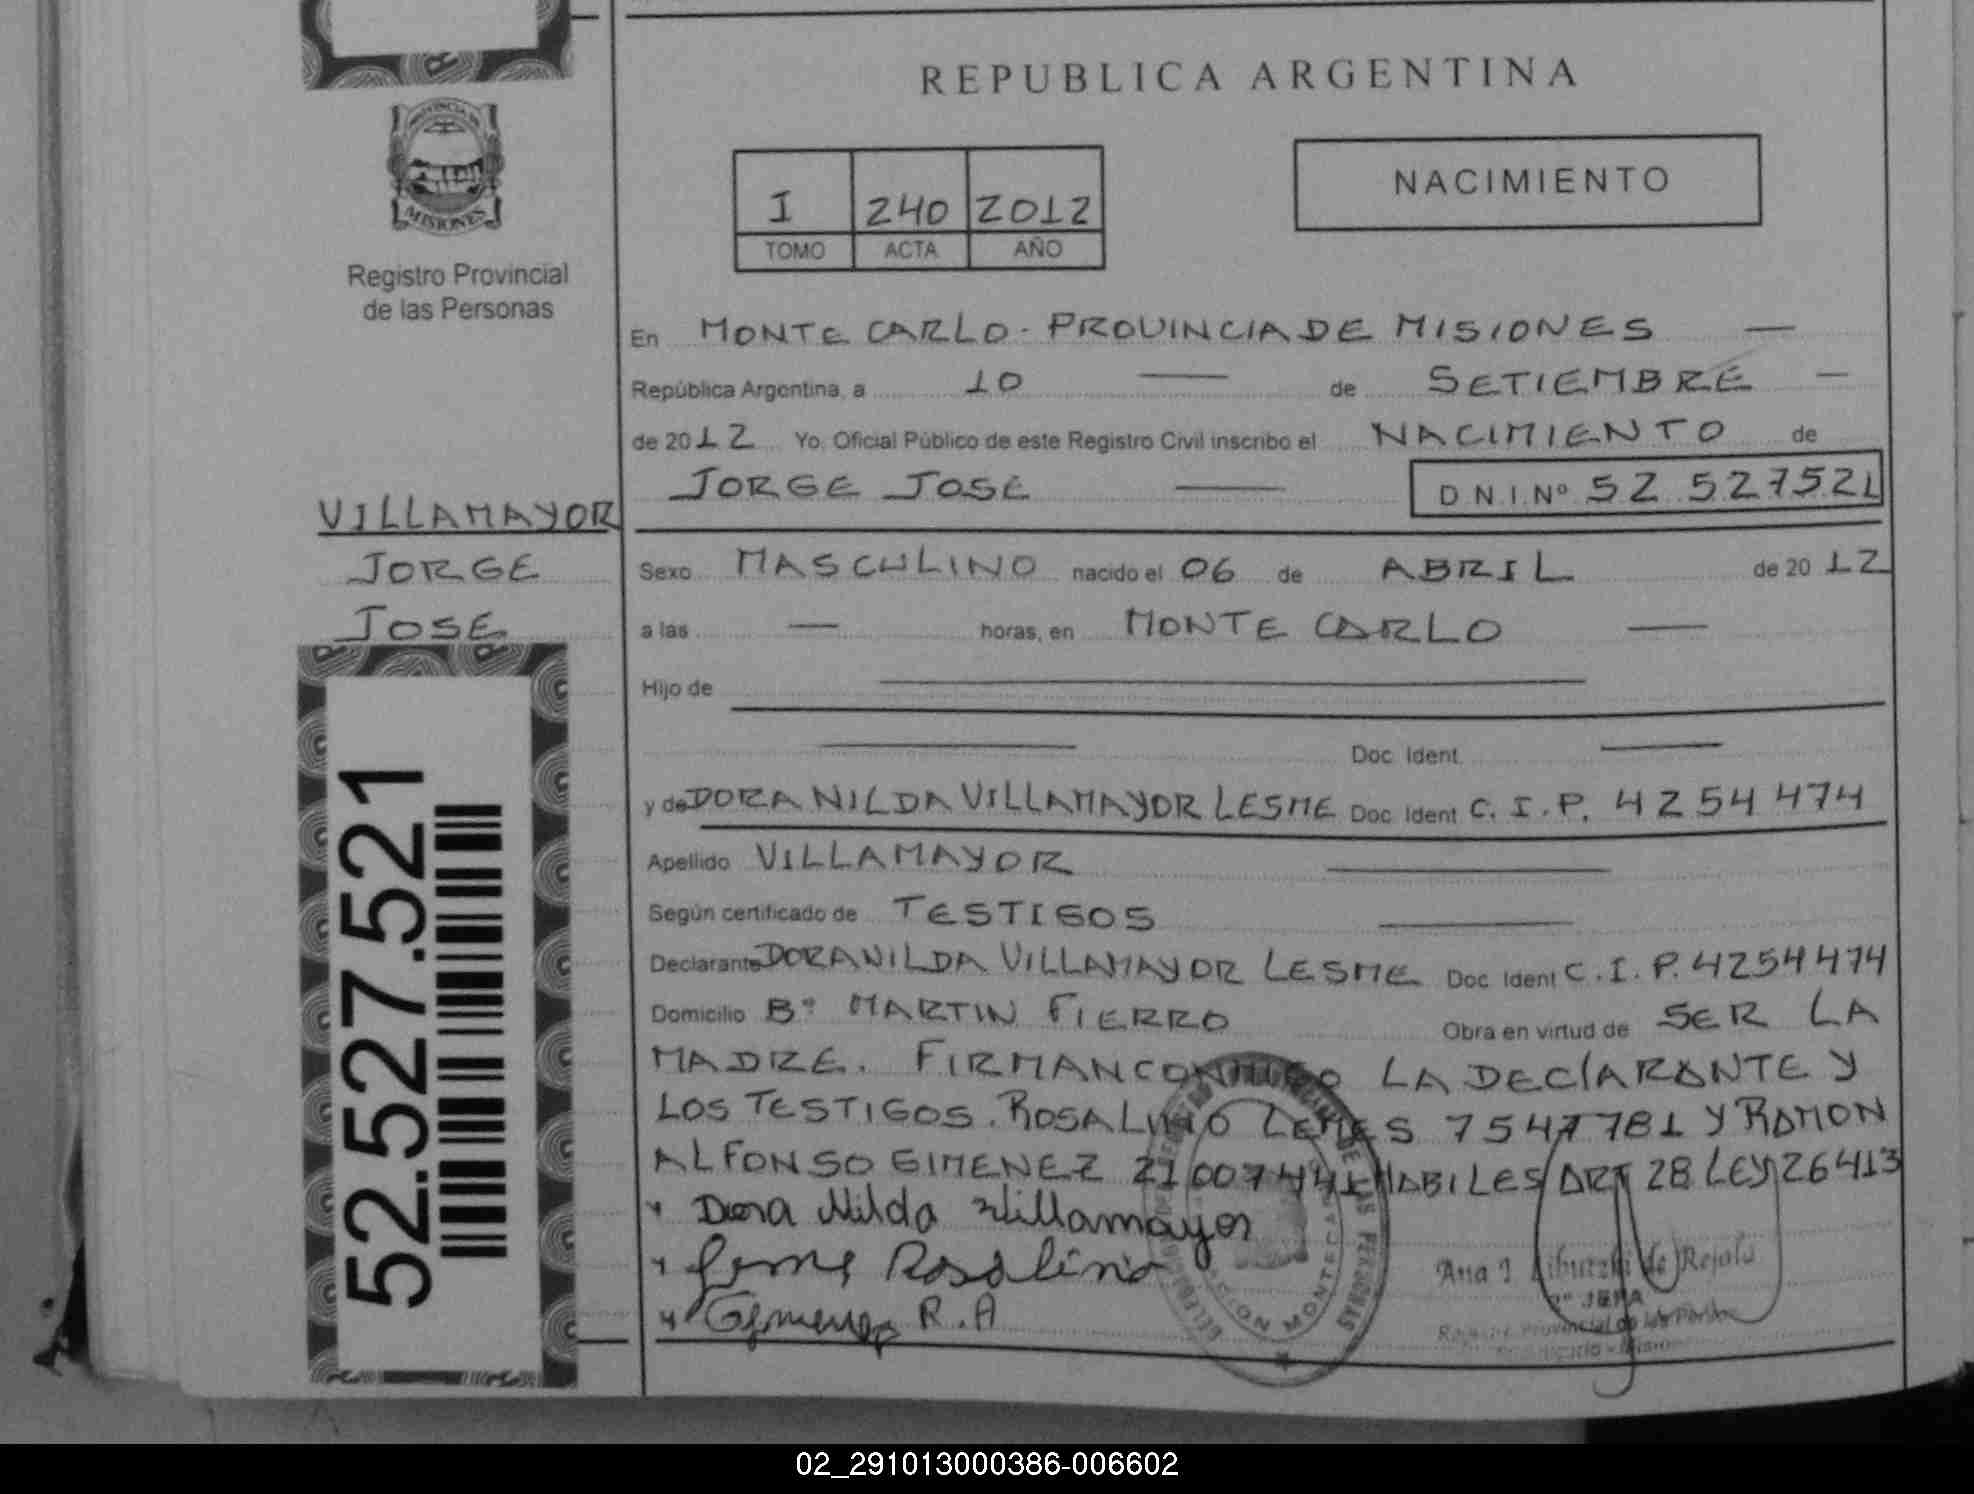 REPUBLICA ARGENTINA
PROVINCIA DE
MISIONES
Registro Provincial
de las Personas
I 240 2012
TOMO ACTA AÑO
NACIMIENTO
En MONTE CARLO - PROVINCIA DE MISIONES —
República Argentina, a 10 — de SETIEMBRE —
de 2012 Yo, Oficial Público de este Registro Civil inscribo el NACIMIENTO de
JORGE JOSE — D.N.I.Nº 52 527521
VILLAMAYOR
JORGE
JOSE
52.527.521
Sexo MASCULINO nacido el 06 de ABRIL de 2012
a las — horas, en MONTE CARLO —
Hijo de —
— Doc. Ident. —
y de DORA NILDA VILLAMAYOR LESME Doc. Ident C.I.P. 4254474
Apellido VILLAMAYOR —
Según certificado de TESTIGOS —
Declarante DORA NILDA VILLAMAYOR LESME Doc. Ident C.I.P. 4254474
Domicilio Bº MARTIN FIERRO Obra en virtud de SER LA
MADRE. FIRMAN CONMIGO LA DECLARANTE Y
LOS TESTIGOS. ROSALINO LEMES 7547781 Y RAMON
ALFONSO GIMENEZ 21007441 HABILES ART 28 LEY 26413
Dora Nilda Villamayor
Rosalino
Gimenez R.A
Ana I de Rejala
JEFA
Registro Provincial de las Personas
MONTECARLO
PERSONAS
02_291013000386-006602